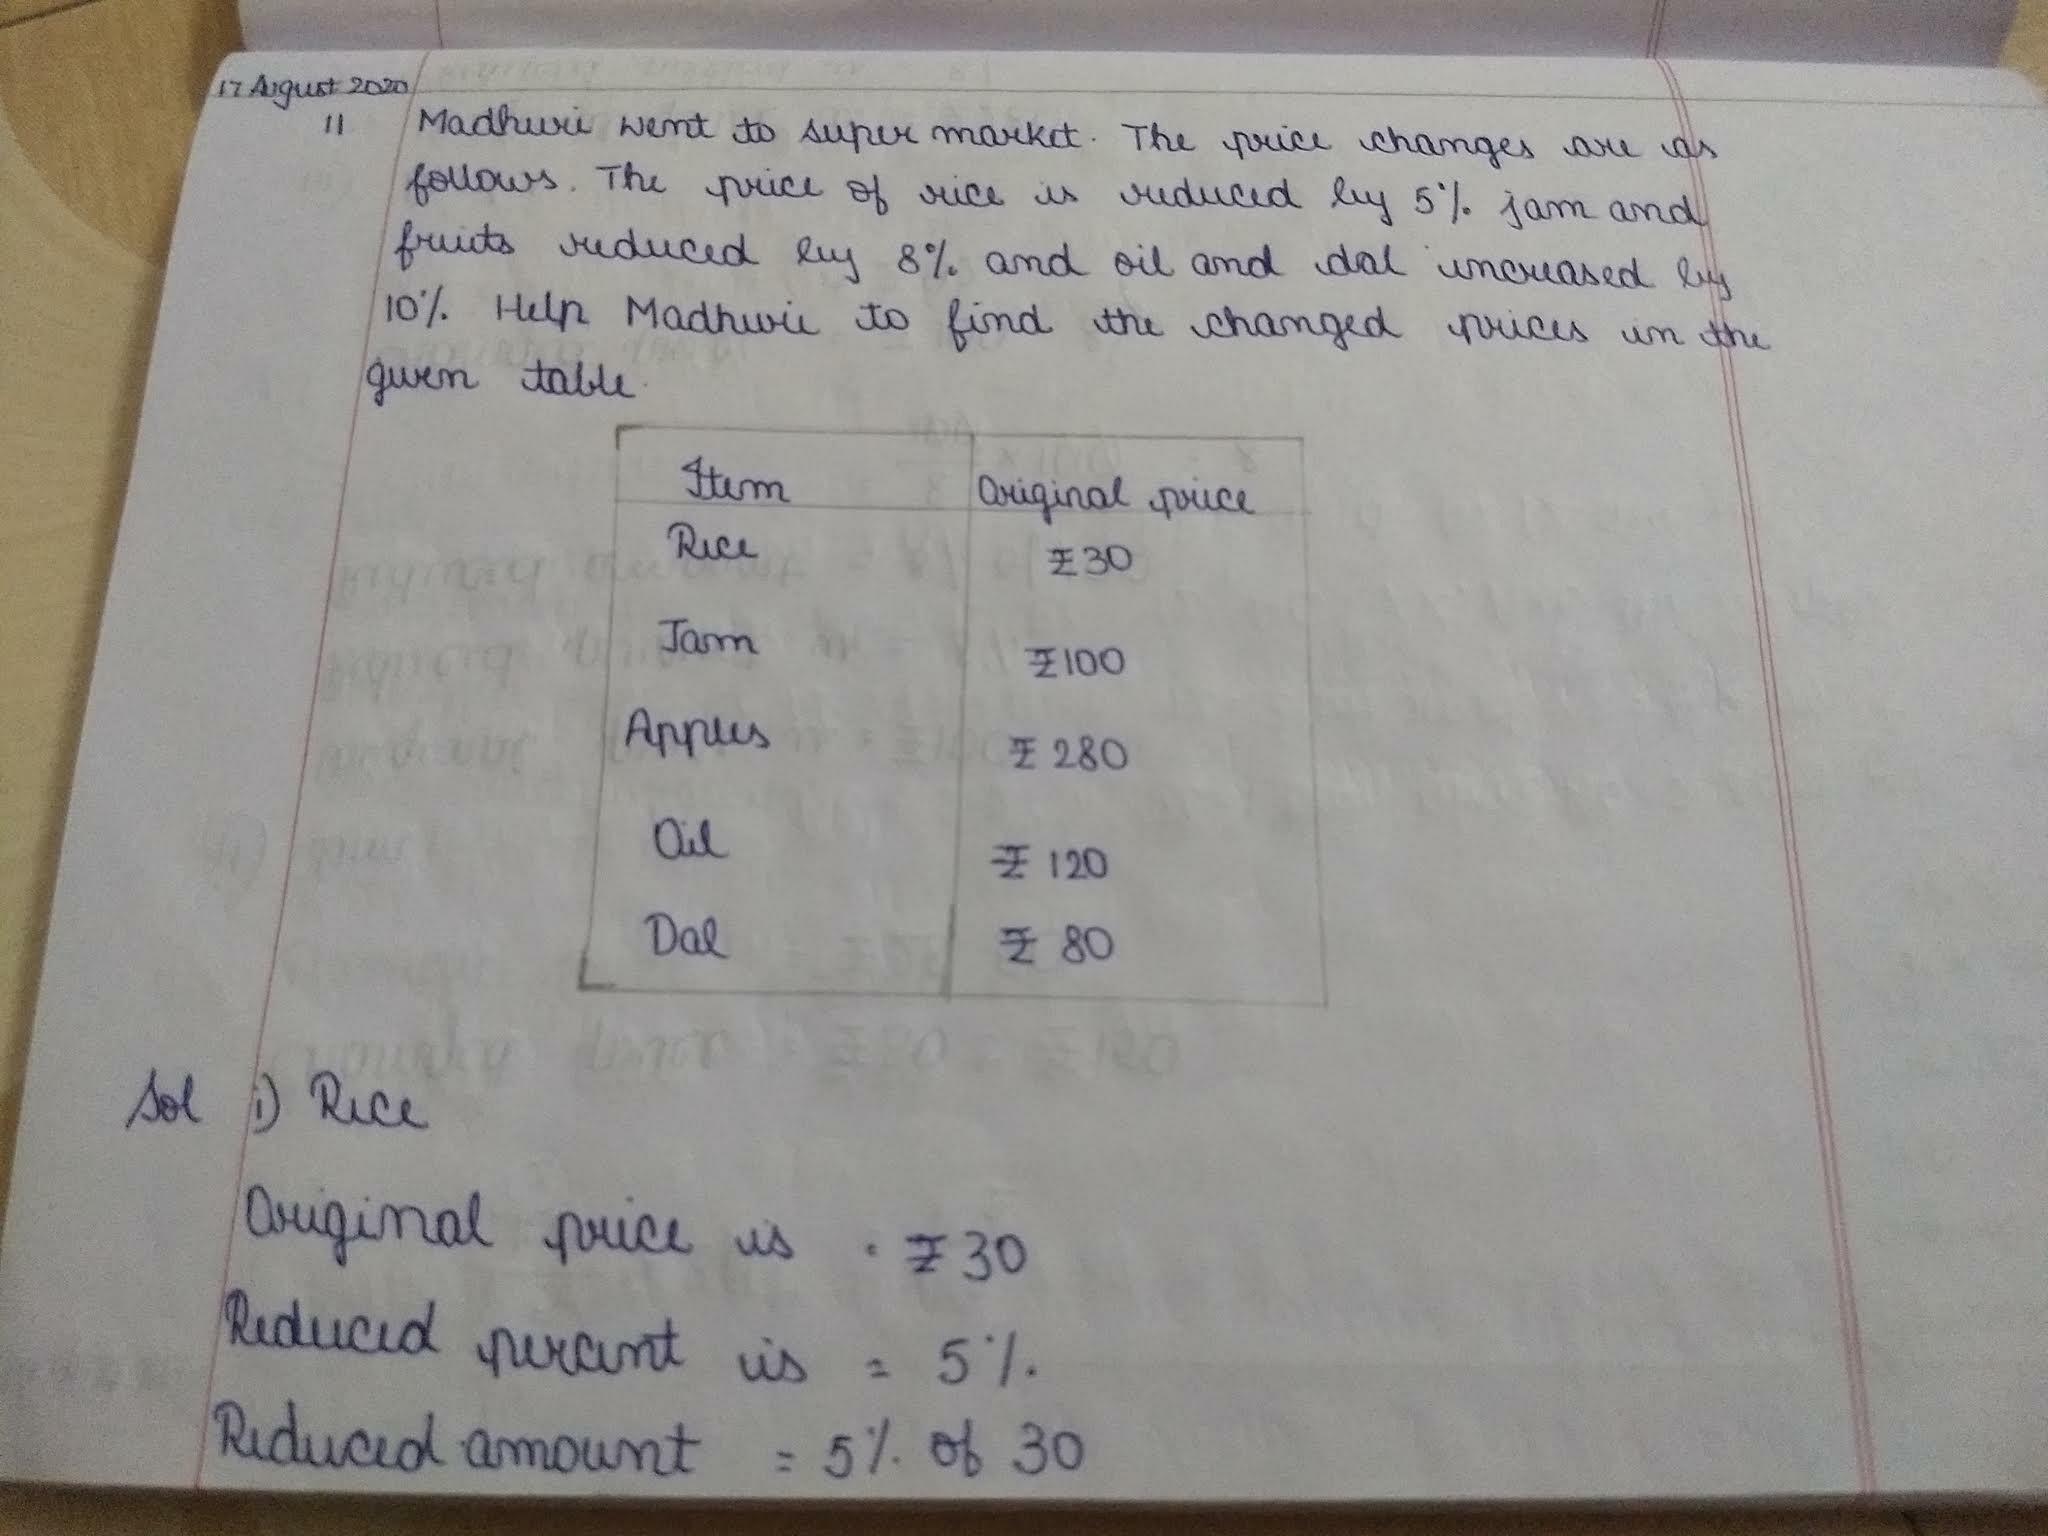 17 August 2020
11 Madhuri went to super market. The price changes are as
follows. The price of rice is reduced by 5% jam and
fruits reduced by 8% and oil and dal increased by
10%. Help Madhurie to find the changed prices in the
given table.
Item Original price
Rice ₹30
Jam ₹100
Apples ₹ 280
Oil ₹ 120
Dal ₹ 80
Sol i) Rice
Original price is . ₹30
Reduced percent is = 5%.
Reduced amount = 5% of 30